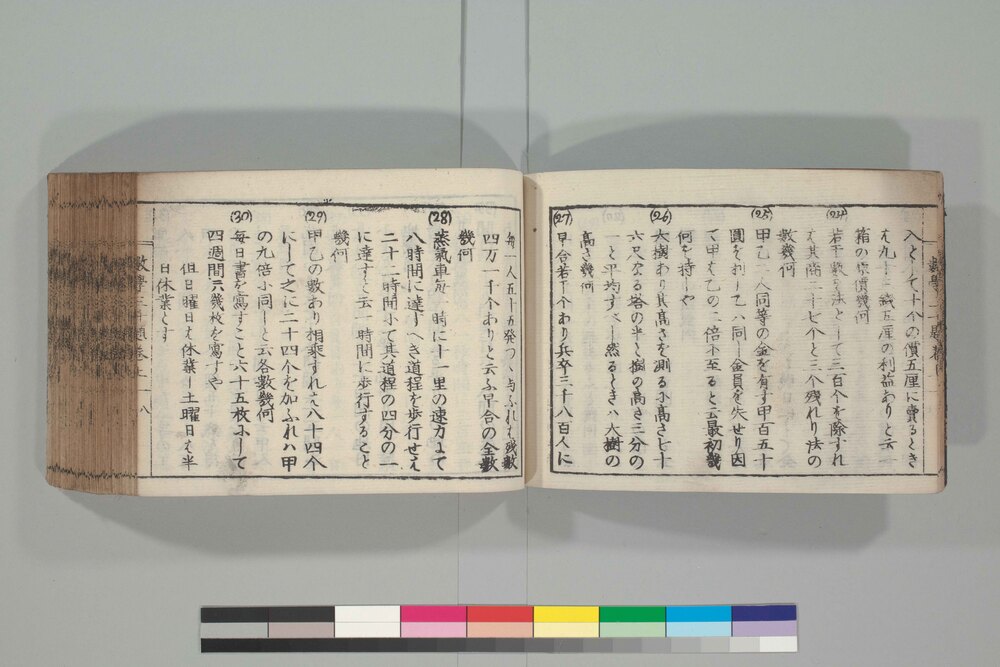 入として十个の價五厘に賣るとき
は九十二銭五厘の利益ありと云
箱の原價幾何
(24)
若干數を法として三百个を除すれ
は其商二十七个と三个残れり法の
數幾何
(25)
甲乙二人同等の金を有す甲百五十
圓を利し乙ハ同し金員を失せり因
て甲は乙の二倍に至ると云最初幾
何を持しや
(26)
大樹あり其高さを測るに高さ七十
六尺なる塔の半と樹の高さ三分の
一と平均すべし然るときハ大樹の
高さ幾何
(27)
早合若干个あり兵卒三千八百人に
毎一人五十五発つゝ与ふれは残數
四万一千个ありと云ふ早合の全數
幾何
(28)
蒸氣車毎一時に十一里の速力にて
八時間に達すへき道程を歩行せは
二十二時間にて其道程の四分の一
に達すと云一時間に歩行すること
幾何
(29)
甲乙の數あり相乘すれは八十四个
にして之に二十四个を加ふれハ甲
の九倍に同しと云各數幾何
(30)
毎日書を寫すこと六十五枚にして
四週間に幾枚を寫すや
但日曜日は休業し土曜日は半
日休業とす
八